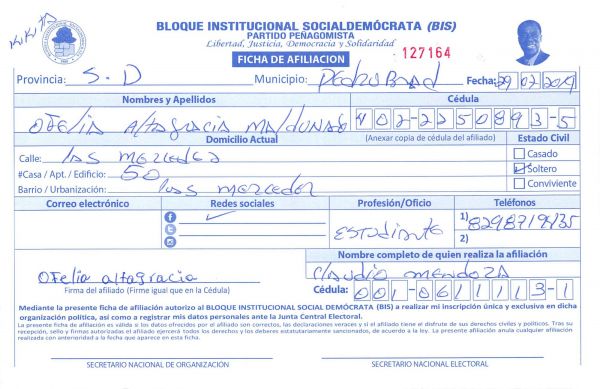 KIKITA
BLOQUE INSTITUCIONAL SOCIALDEMÓCRATA (BIS)
PARTIDO PEÑAGOMISTA
Libertad, Justicia, Democracia y Solidaridad
FICHA DE AFILIACION
127164
Provincia: S.D Municipio: Pedro Brand Fecha: 29/02/2019
Nombres y Apellidos Cédula
OFELIA ALTAGRACIA MALDONADO 402-2250893-5
Domicilio Actual (Anexar copia de cédula del afiliado) Estado Civil
Calle: las mercedes Casado
#Casa / Apt. / Edificio: 50 Soltero
Barrio / Urbanización: las mercedes Conviviente
Correo electrónico Redes sociales Profesión/Oficio Teléfonos
ESTUDIANTE 1)
2)
Nombre completo de quien realiza la afiliación
Ofelia altagracia CLAUDIO MENDOZA
Firma del afiliado (Firme igual que en la Cédula) Cédula: 001-0611113-1
Mediante la presente ficha de afiliación autorizo al BLOQUE INSTITUCIONAL SOCIAL DEMÓCRATA (BIS) a realizar mi inscripción única y exclusiva en dicha
organización política, así como a registrar mis datos personales ante la Junta Central Electoral.
La presente ficha de afiliación es válida si los datos ofrecidos por el afiliado son correctos, las declaraciones veraces y si el afiliado tiene el disfrute de sus derechos civiles y políticos. Tras su
recepción, sello y firmas autorizadas el afiliado ejercerá todos los derechos y los deberes estatutariamente sancionados, de acuerdo a la ley. La presente afiliación anula cualquier afiliación
realizada con anterioridad a la fecha que aparece en esta ficha.
SECRETARIO NACIONAL DE ORGANIZACIÓN SECRETARIO NACIONAL ELECTORAL